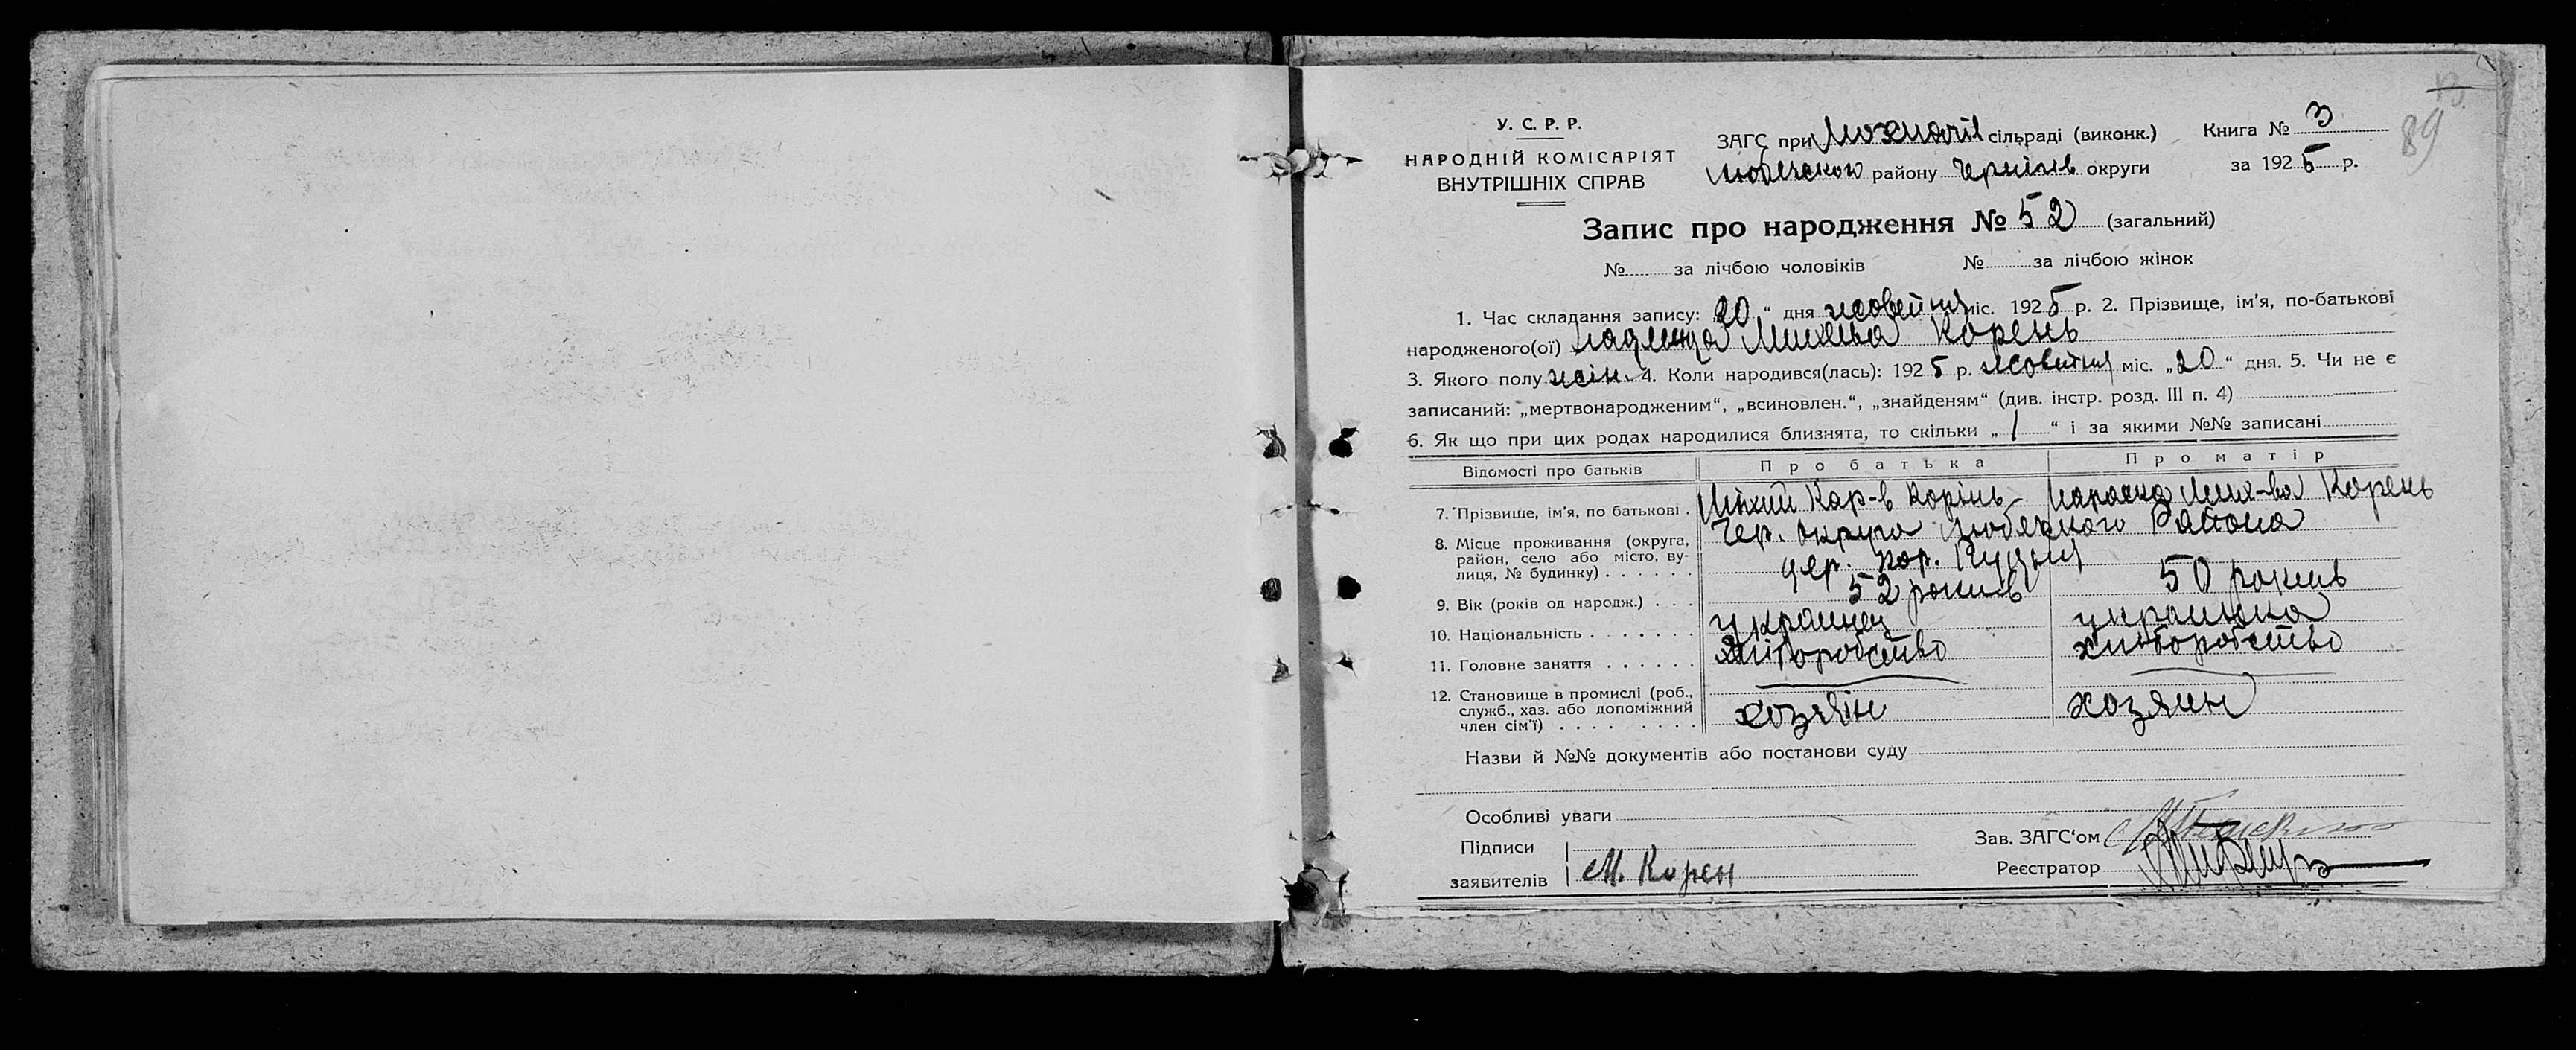 89
У. С. Р. Р.
НАРОДНІЙ КОМІСАРІЯТ
ВНУТРІШНІХ СПРАВ
ЗАГС при Мохначів сільраді (виконк.) Книга № 3
Любечского району Чернігів округи за 1925 р.
Запис про народження № 52 (загальний)
№ за лічбою чоловіків № за лічбою жінок
1. Час складання запису: 20 “ дня жовтня міс. 1925 р. 2. Прізвище, ім’я, по-батькові
народженого(ої) Корень
3. Якого полу жін. 4. Коли народився(лась): 1925 р. жовтня міс. „20“ дня. 5. Чи не є
записаний: „мертвонародженим“, „всиновлен.“, „знайденям“ (див. інстр. розд. III п. 4)
6. Як що при цих родах народилися близнята, то скільки „1“ і за якими №№ записані
Відомості про батьків Про батька Про матір
7. Прізвище, ім’я, по батькові . Кар-в Корінь Параска Мих-ва Корень
8. Місце проживання (округа, Чер. округа Любечкого Района
район, село або місто, ву-
лиця, № будинку) . . . . . . дер. Кор. Рудня
9. Вік (років од народж.) . . . 52 рокив 50 рокив
10. Національність . . . . . . . украинец украинка
11. Головне заняття . . . . . . хліборобство хлиборобство
12. Становище в промислі (роб.,
служб., хаз. або допоміжний хозяін хозяин
член сім’ї) . . . . . . . . .
Назви й №№ документів або постанови суду
Особливі уваги
Підписи Зав. ЗАГС‘ом
заявителів М. Корен Реєстратор